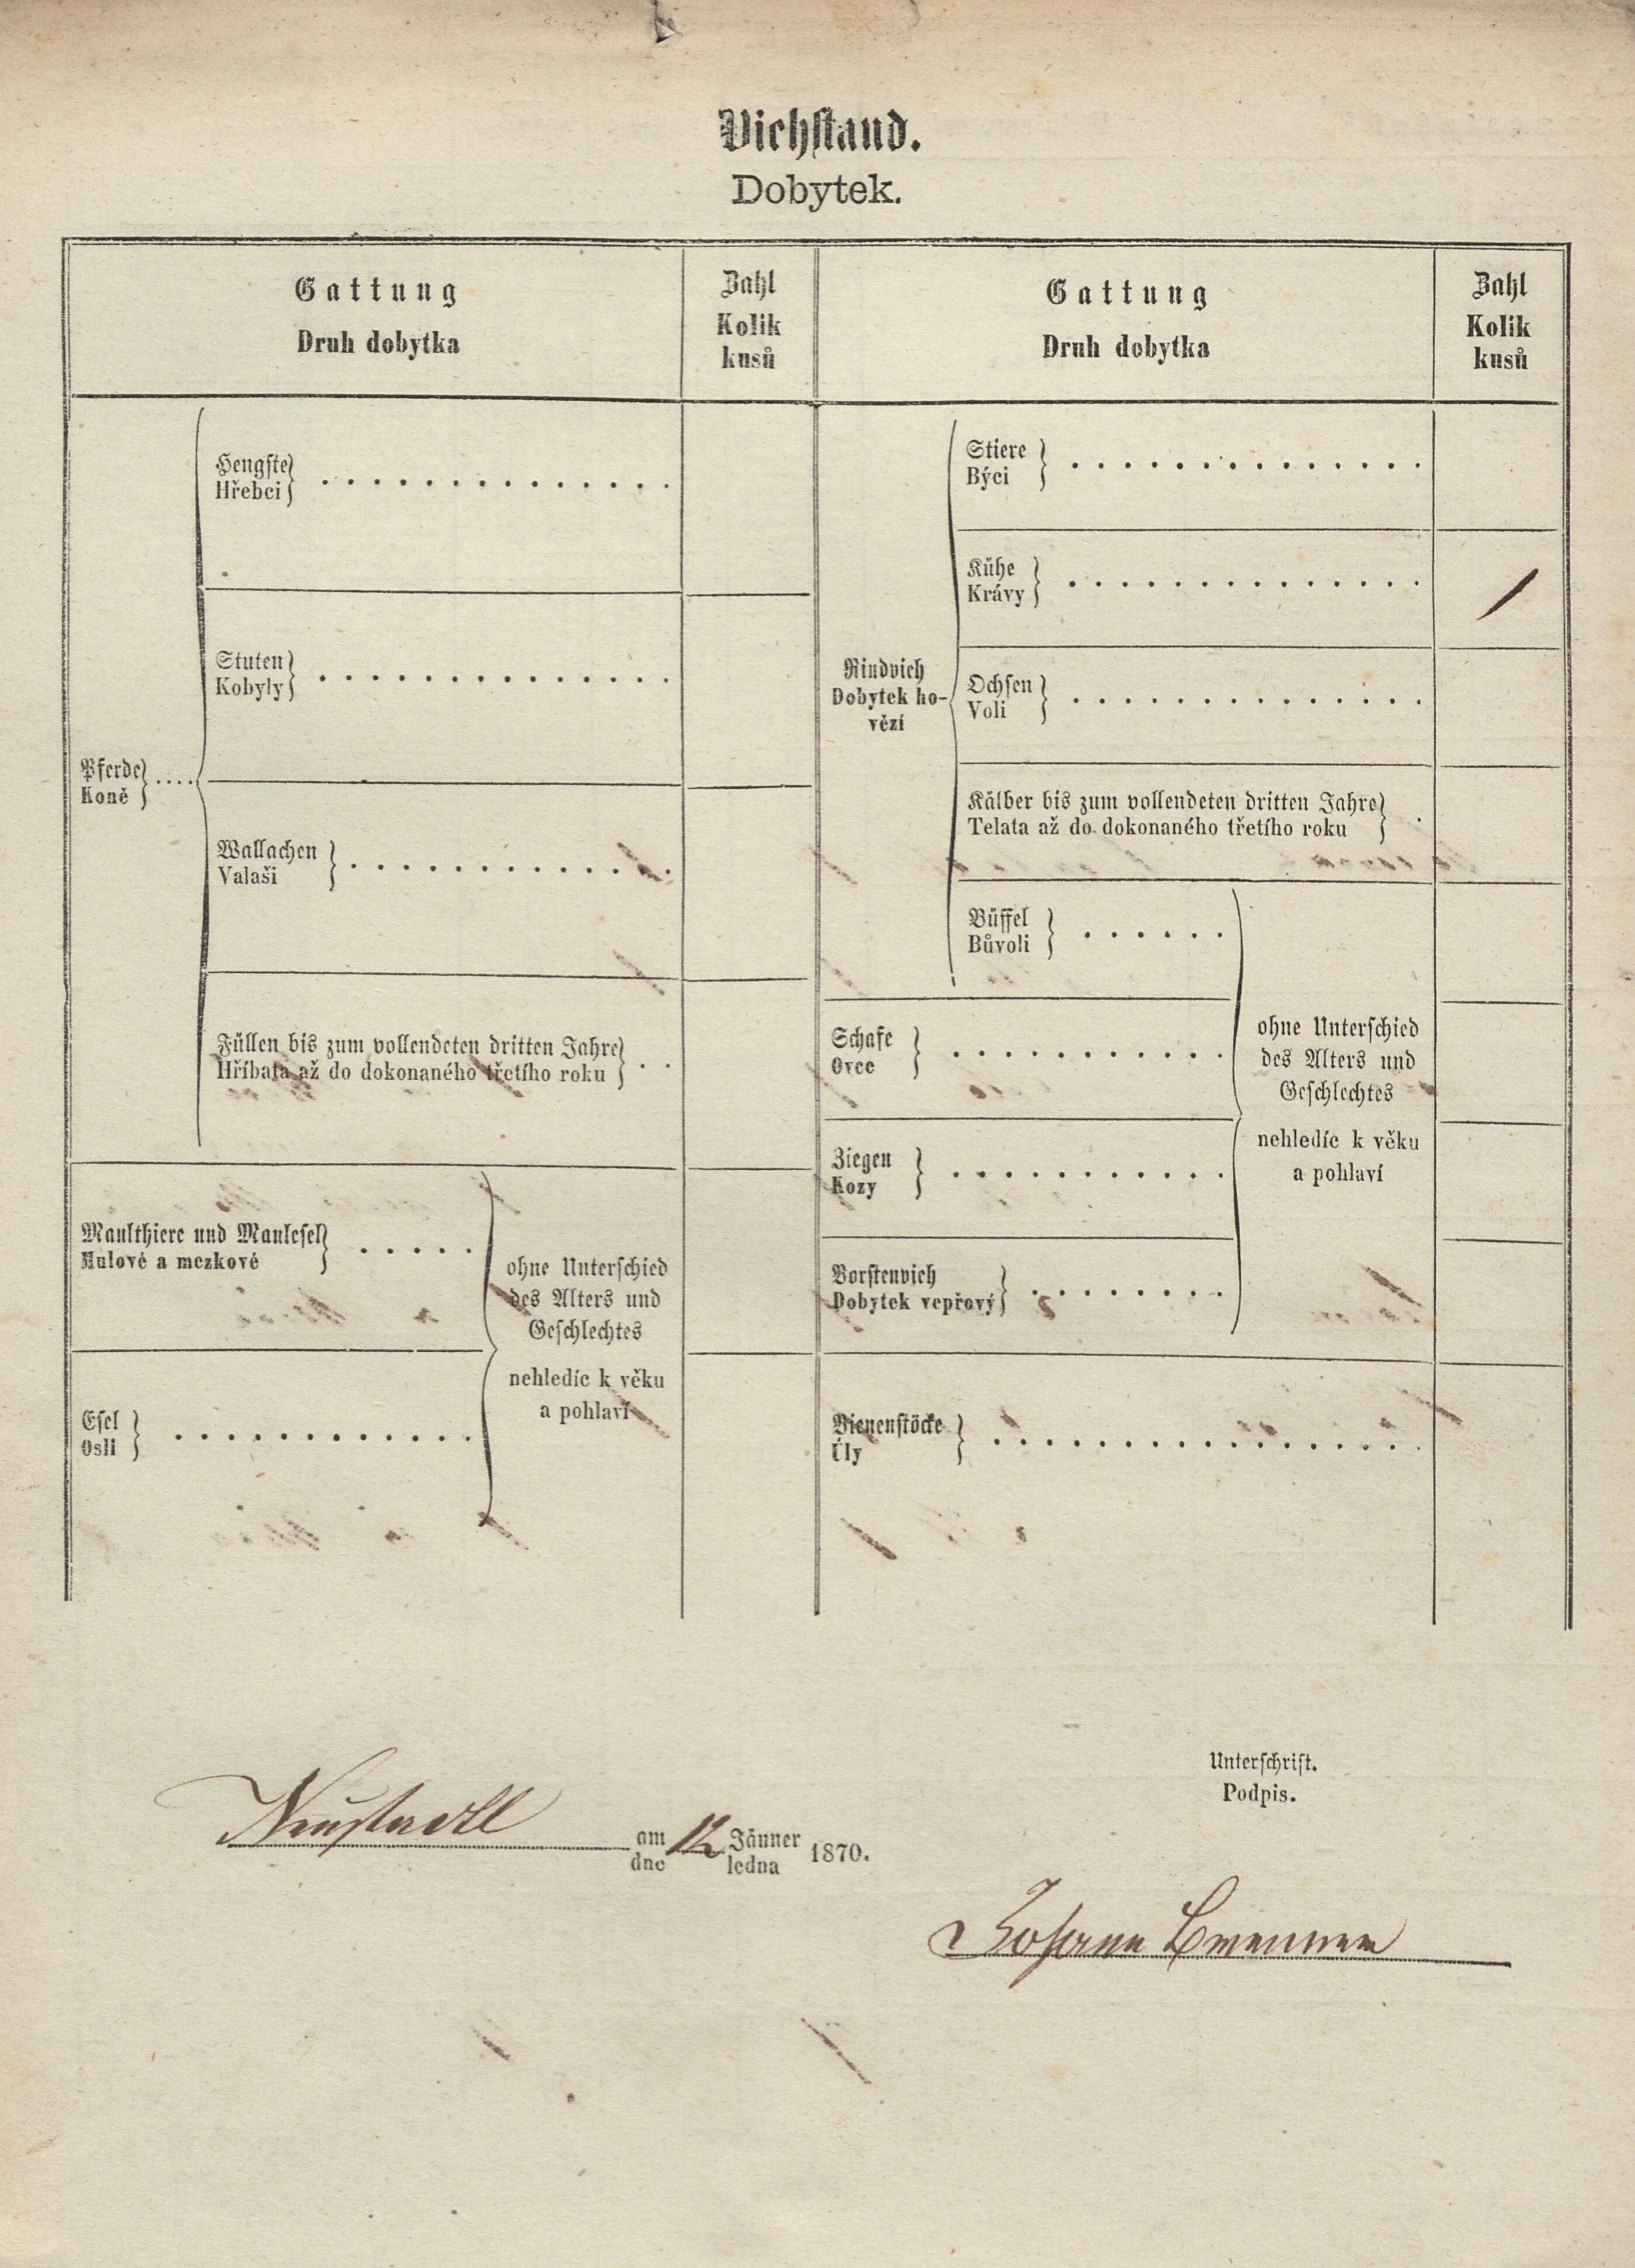 Viehstand.
Dobytek.
Gattung
Druh dobytka
Zahl
Kolik
kusů
Gattung
Druh dobytka
Zahl
Kolik
kusů
Pferde
Koně
Hengste
Hřebci
Stuten
Kobyly
Wallachen
Valaši
Füllen bis zum vollendeten dritten Jahre
Hříbata až do dokonaného třetího roku
Maulthiere und Maulesel
Mulové a mezkové
Esel
Osli
ohne Unterschied
des Alters und
Geschlechtes
nehledíc k věku
a pohlaví
Rindvieh
Dobytek ho-
vězí
Stiere
Býci
Kühe
Krávy
1
Ochsen
Voli
Kälber bis zum vollendeten dritten Jahre
Telata až do dokonaného třetího roku
Büffel
Bůvoli
Schafe
Ovce
Ziegen
Kozy
Borstenvieh
Dobytek vepřový
ohne Unterschied
des Alters und
Geschlechtes
nehledíc k věku
a pohlaví
Bienenstöcke
Úly
Unterschrift.
Podpis.
Neustadtl am 12 Jänner 1870.
dne ledna
Johann Brenner